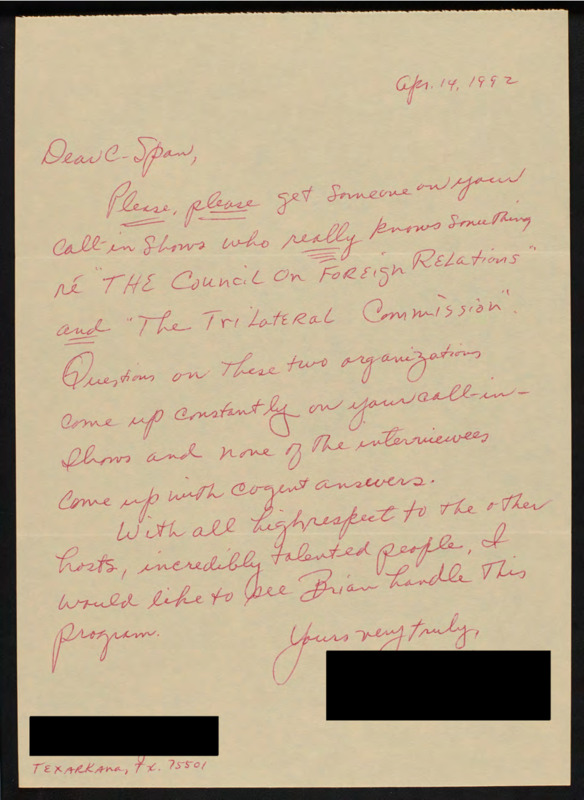 Apr. 14, 1992
Dear C-Span,
Please, please get someone on your
call-in shows who really knows something
ré "THE Council On Foreign Relations"
and "The TriLateral Commission".
Questions on these two organizations
come up constantly on your call-in-
shows and none of the interviewees
come up with cogent answers.
With all high respect to the other
hosts, incredibly talented people, I
would like to see Brian handle this
program.
Yours very truly,
Texarkana, Tx. 75501